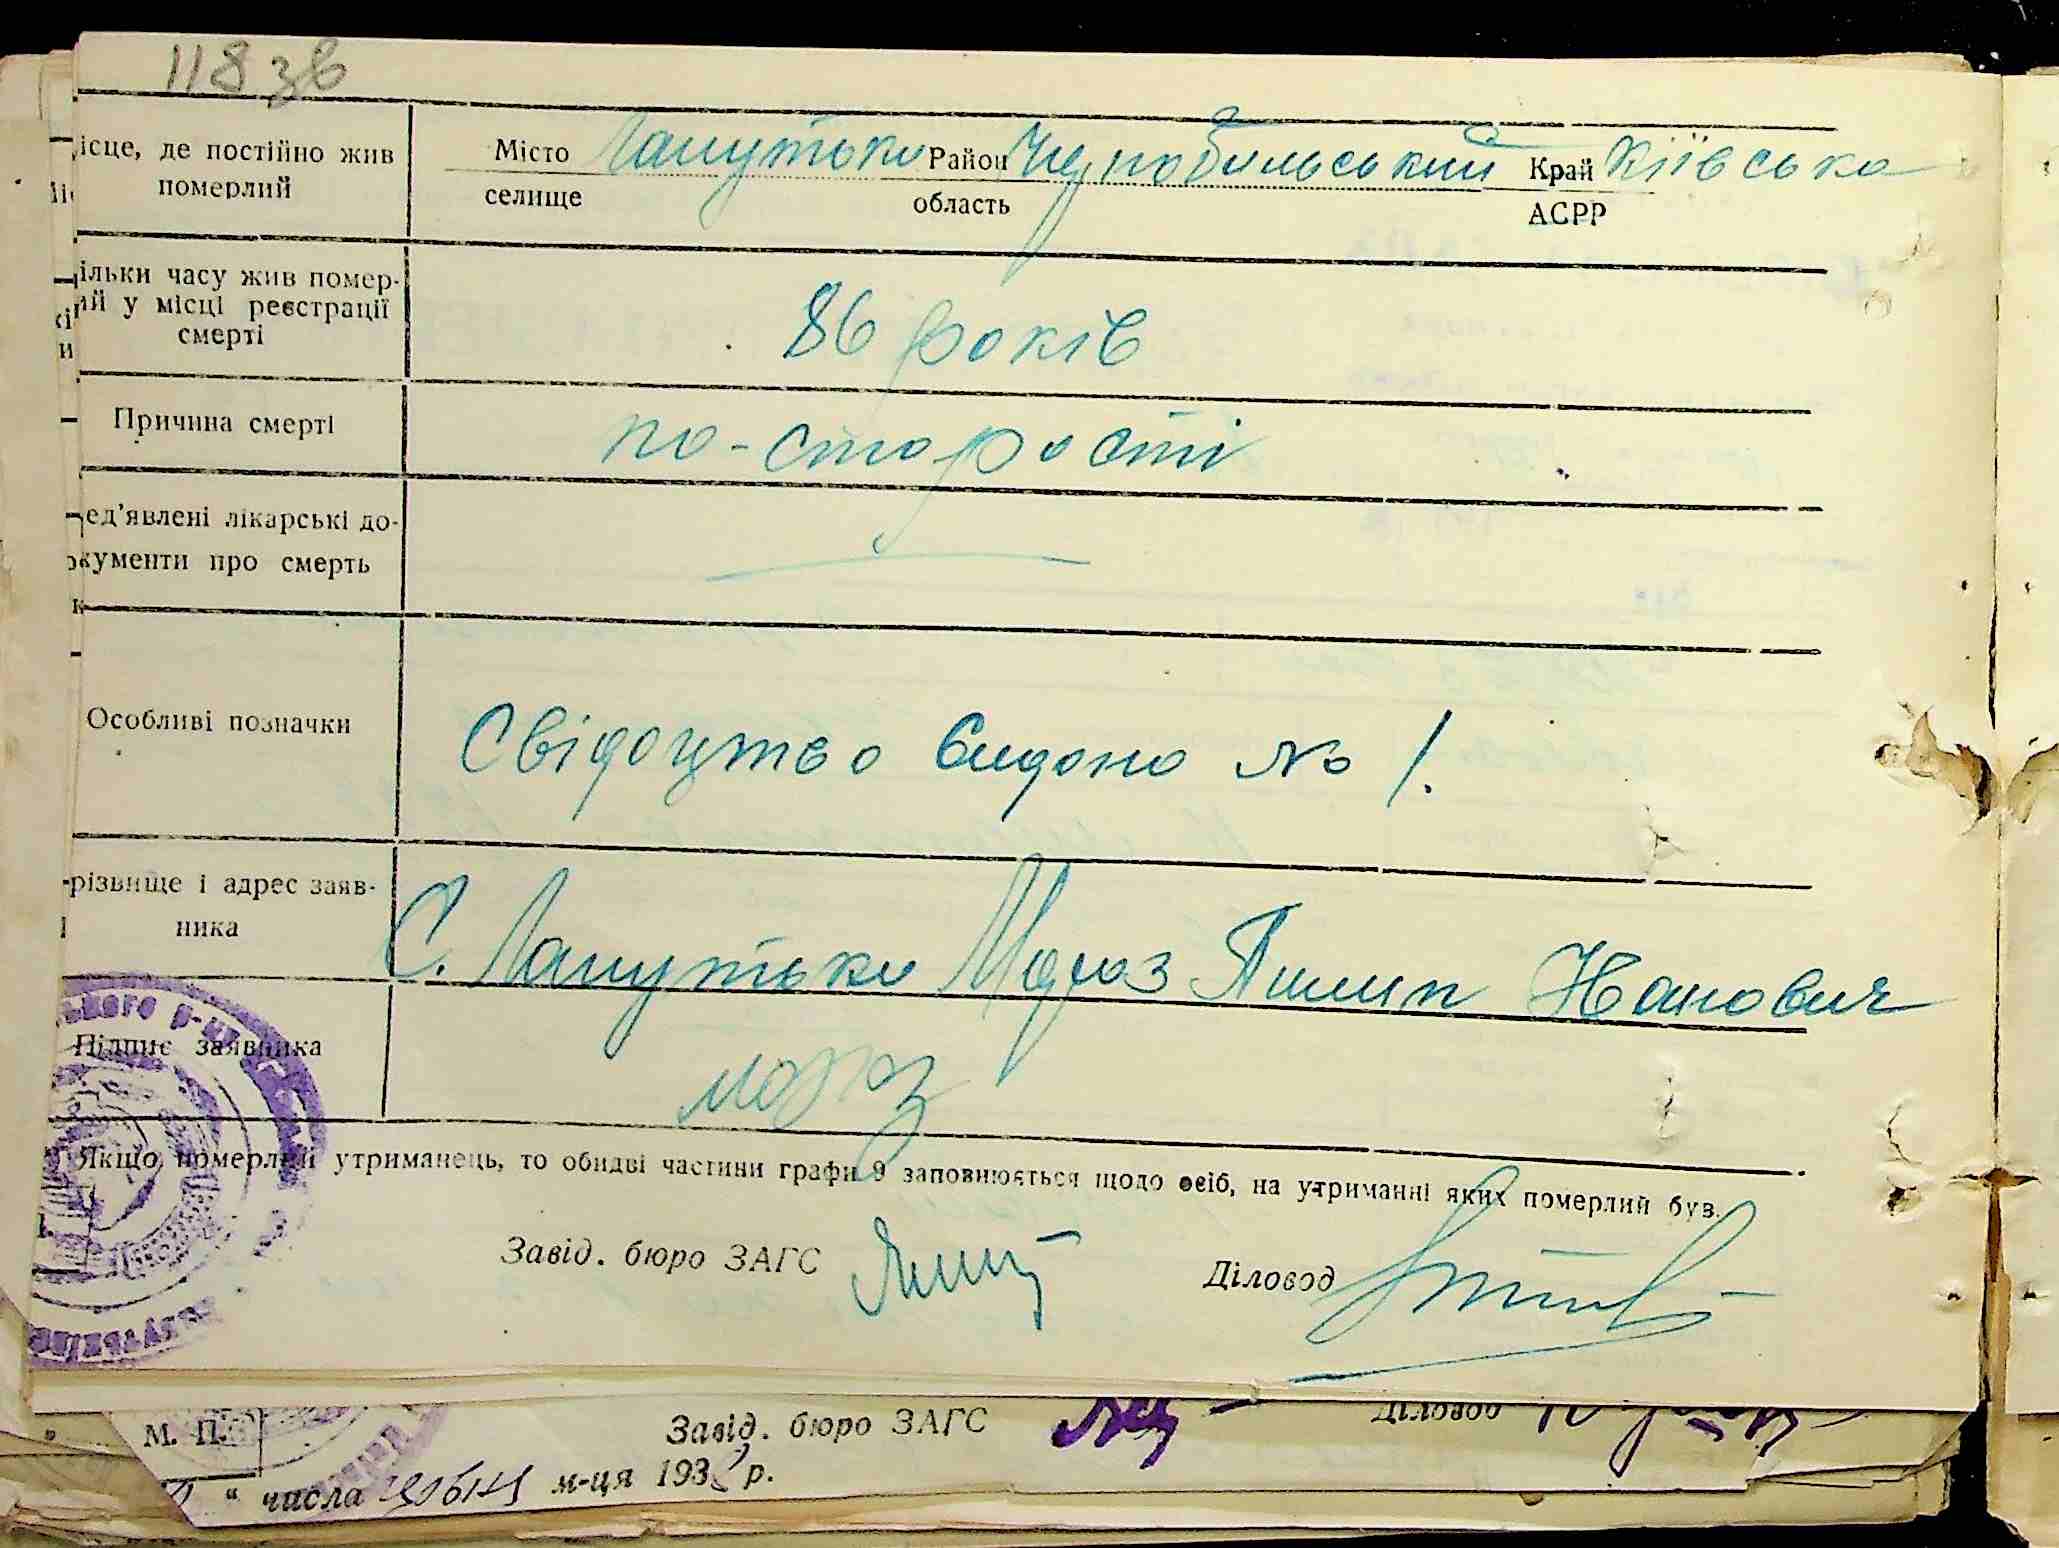 118 зв
ісце, де постійно жив
померлий
Місто Лапутьки Район Чорнобильський Край Київська
селище область АСРР
ільки часу жив помер-
ий у місці реєстрації
смерті
86 років
Причина смерті
по-старості
ед'явлені лікарські до-
кументи про смерть
Особливі позначки
Свідоцтво видано № 1.
різвище і адрес заяв-
ника
С. Лапутьки Мороз Пилип Иванович
Підпис заявника
мороз
Якщо померлий утриманець, то обидві частини графи 9 заповнюється щодо осіб, на утриманні яких померлий був.
Завід. бюро ЗАГС
Діловод
М. П.
Завід. бюро ЗАГС
Діловод
“ числа м-ця 193 р.